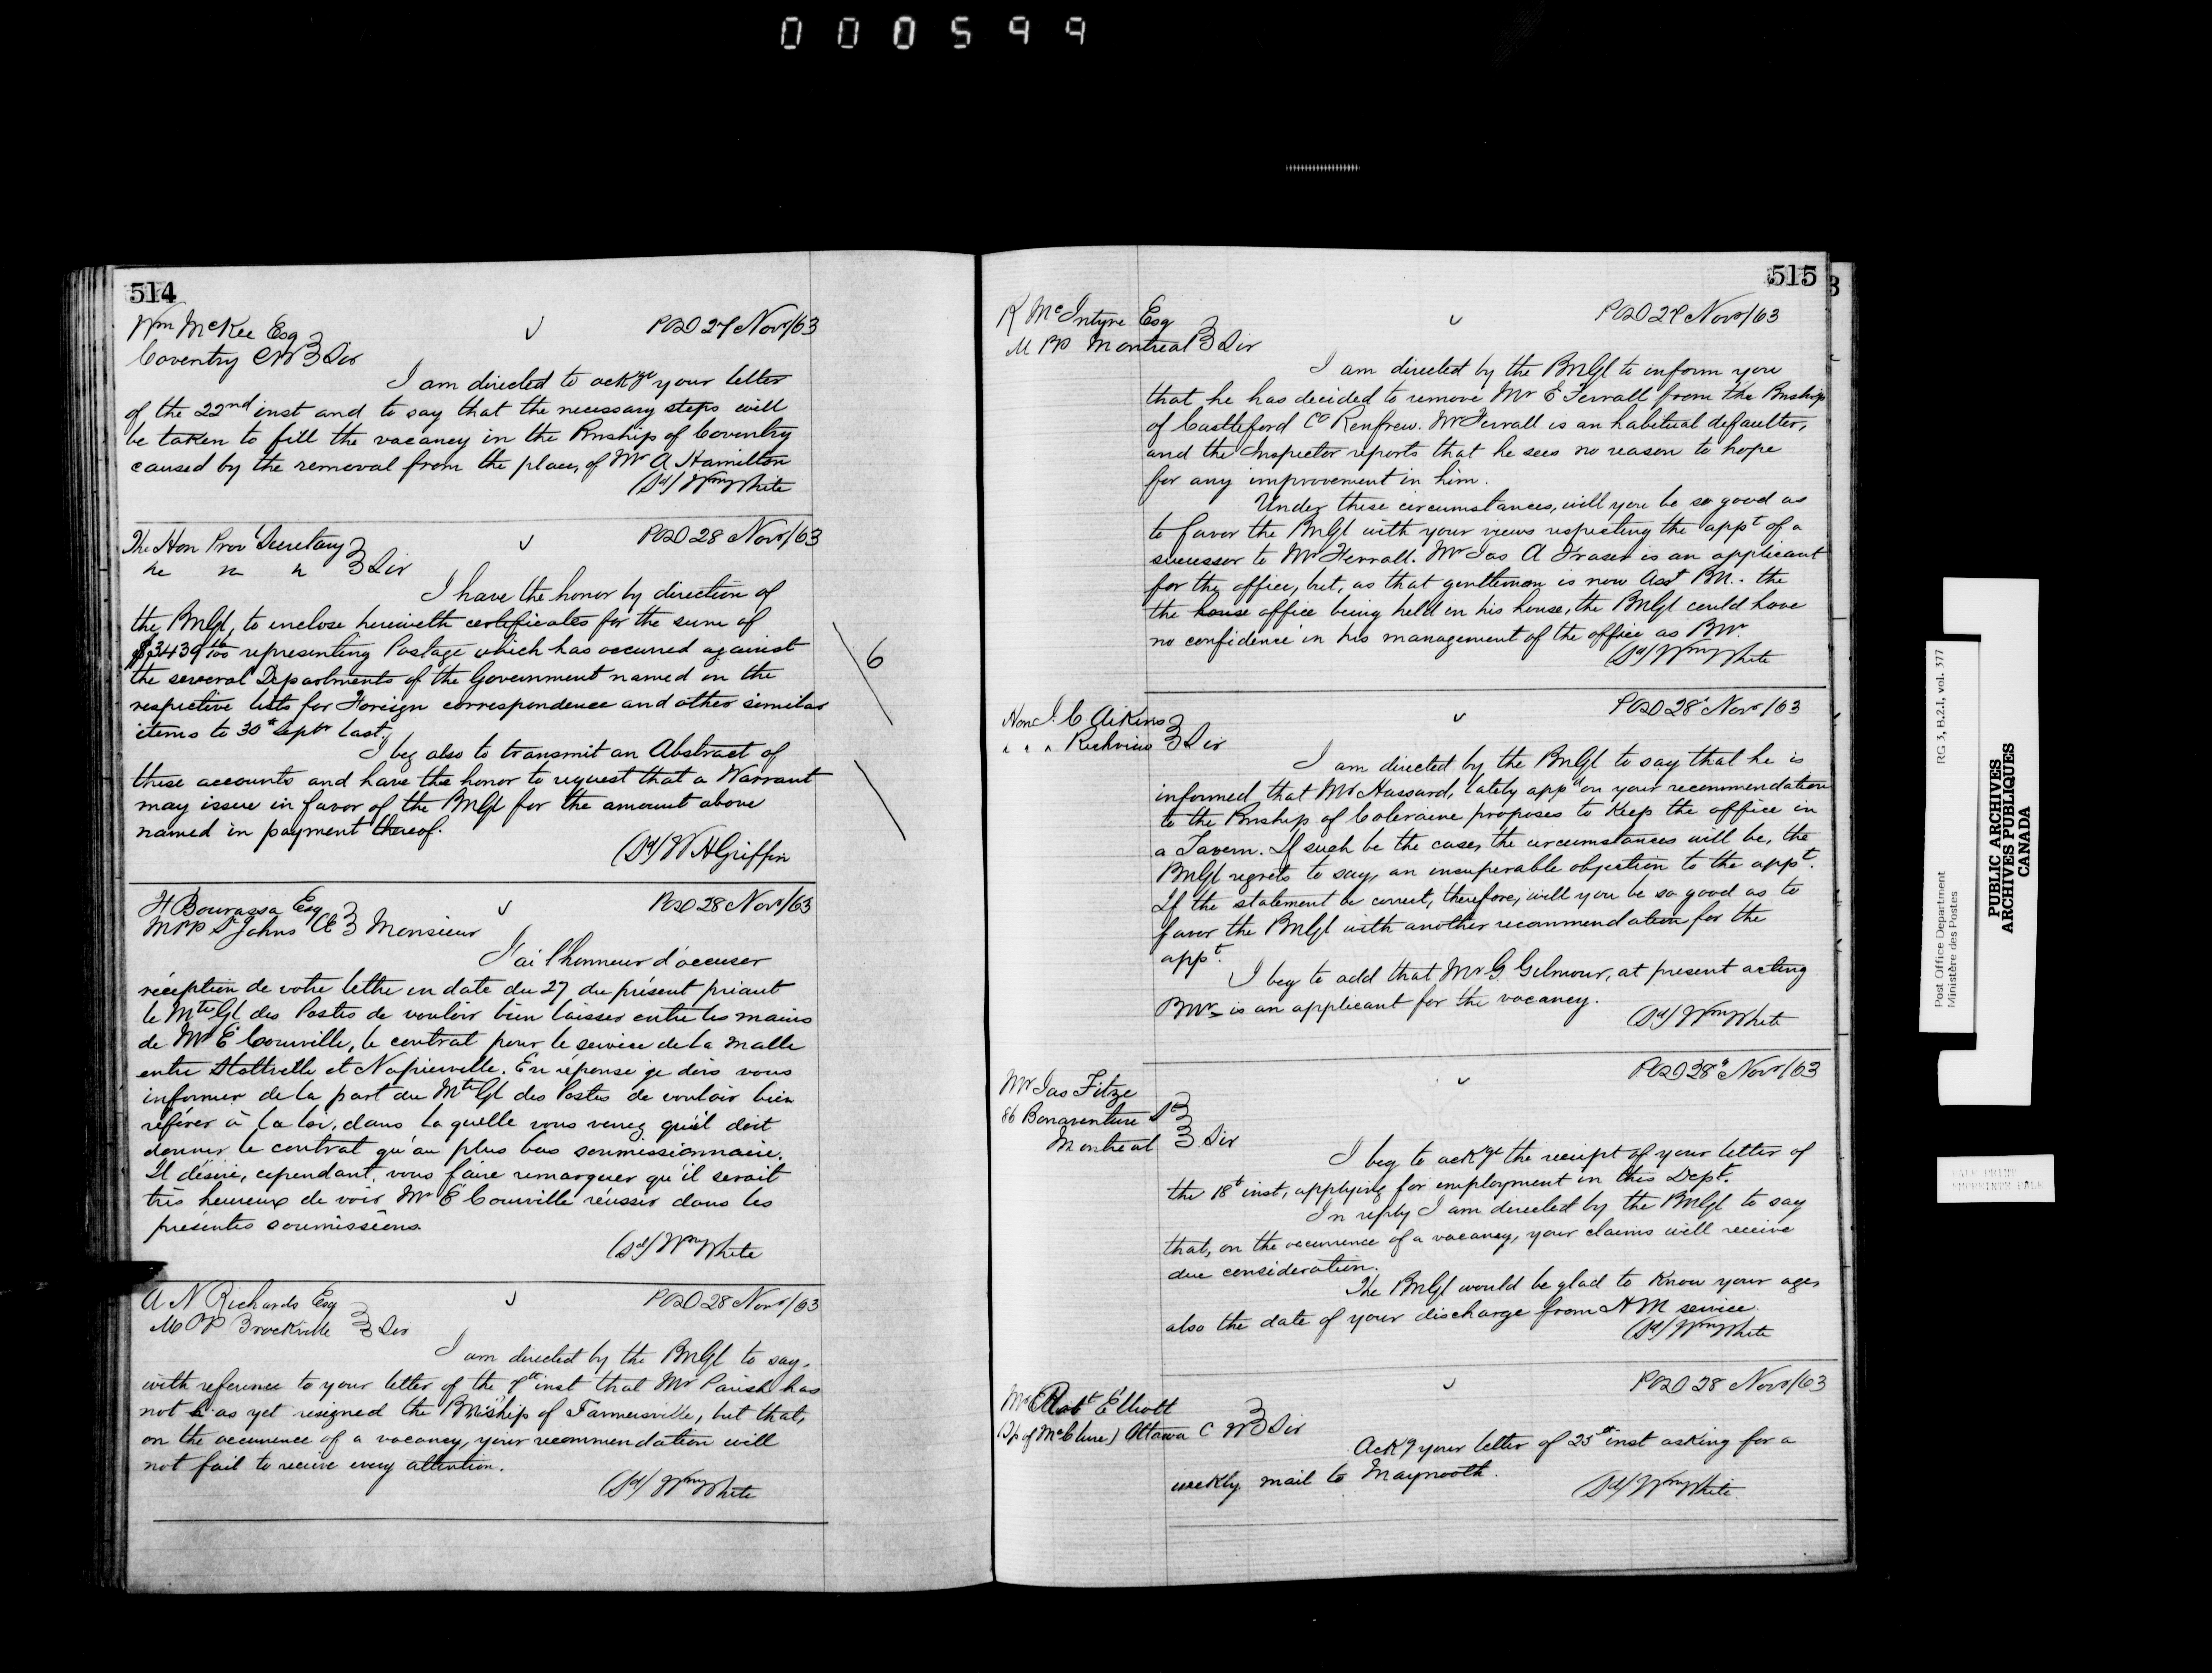 000599
514
Wm McKee Esq
Coventry CW } Sir
POD 27 Novr/63
I am directed to ackge your letter
of the 22nd inst and to say that the necessary steps will
be taken to fill the vacancy in the Pmship of Coventry
caused by the removal from the place, of Mr A Hamilton
(Sd) Wm White
The Hon Prov Secretary
POD 28 Novr/63
} Sir
I have the honor by direction of
the PmGl, to enclose herewith certificates for the sum of
representing Postage which has occurred against
the several Departments of the Government named in the
respective lists for Foreign correspondence and other similar
items to 30th Septr last.
I beg also to transmit an Abstract of
these accounts and have the honor to request that a Warrant
may issue in favor of the PmGl for the amount above
named in payment thereof.
(Sd) W H Griffin
6
F Bourassa Esq
MPP St Johns CE } Monsieur
POD 28 Novr/63
J'ai l'honneur d'accuser
réception de votre lettre en date du 27 du présent priant
le Mtre Gl des Postes de vouloir bien laisser entre les mains
de Mr E Courville, le contrat pour le service de la malle
entre Stottville et Napierville. En réponse je dois vous
informer de la part du Mtre Gl des Postes de vouloir bien
référer à la loi, dans laquelle vous verrez qu'il doit
donner le contrat qu'au plus bas soumissionnaire.
Il désire, cependant, vous faire remarquer qu'il serait
très heureux de voir Mr E Courville réussir dans les
présentes soumissions.
(Sd) Wm White
A N Richards Esq
MPP Brockville } Sir
POD 28 Novr/63
I am directed by the PmGl to say,
with reference to your letter of the 7th inst that Mr Parish has
not as yet resigned the Pmship of Farmersville, but that,
on the occurrence of a vacancy, your recommendation will
not fail to receive every attention.
(Sd) Wm White
515
R McIntyre Esq
MPP Montreal } Sir
POD 27 Novr/63
I am directed by the PmGl to inform you
that he has decided to remove Mr E Ferrall from the Pmship
of Castleford Co Renfrew. Mr Ferrall is an habitual defaulter,
and the Inspector reports that he sees no reason to hope
for any improvement in him.
Under these circumstances, will you be so good as
to favor the PmGl with your views respecting the appt of a
successor to Mr Ferrall. Mr Jas A Fraser is an applicant
for the office, but, as that gentleman is now Asst PM. - the
the house office being held in his house, the PmGl could have
no confidence in his management of the office as PMr.
(Sd) Wm White
Hon J. C Aikins
" " " Richview } Sir
POD 28th Novr/63
I am directed by the PmGl to say that he is
informed that Mr Hassard, lately appd on your recommendation
to the Pmship of Coleraine proposes to keep the office in
a Tavern. If such be the case, the circumstances will be, the
PmGl regrets to say, an insuperable objection to the appt.
If the statement be correct, therefore, will you be so good as to
favor the PmGl with another recommendation for the
appt.
I beg to add that Mr G Gilmour, at present acting
PMr is an applicant for the vacancy.
(Sd) Wm White
Mr Jas Fitze
86 Bonaventure St
Montreal } Sir
POD 28th Novr/63
I beg to ackge the receipt of your letter of
the 18th inst, applying for employment in this Dept.
In reply I am directed by the PmGl to say
that, on the occurrence of a vacancy, your claims will receive
due consideration.
The PmGl would be glad to know your age,
also the date of your discharge from H M service.
(Sd) Wm White
Mr Robt Elliott
(Tp of McClure) Ottawa C W } Sir
POD 28 Novr/63
Ackg your letter of 25th inst asking for a
weekly mail to Maynooth.
(Sd) Wm White
Post Office Department
Ministère des Postes
RG 3, B.2.I, vol. 377
PUBLIC ARCHIVES
ARCHIVES PUBLIQUES
CANADA